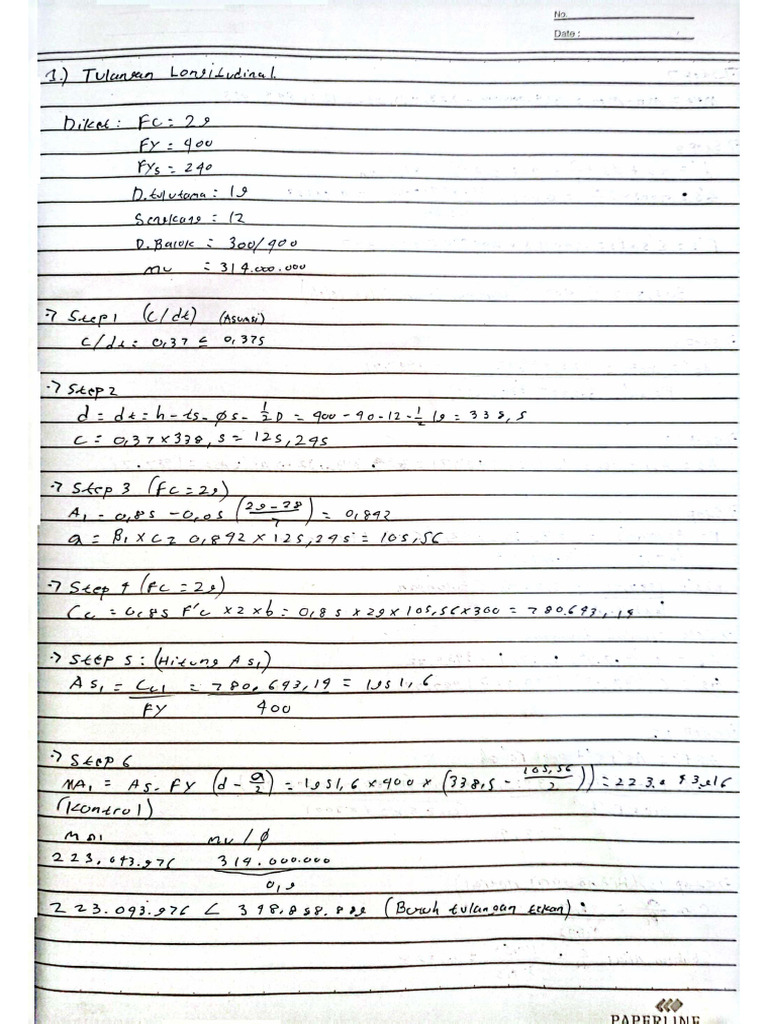 No.
Date :
1.) Tulangan Longitudinal
Diket : FC = 29
FY = 400
FYs = 240
D. tul utama = 19
Sengkang = 12
D. Balok = 300/400
mu = 314.000.000
-> Step 1 (c/dt) (Asumsi)
c/dt = 0,37 ≤ 0,375
-> Step 2
d = dt = h - ts - øs - 1/2 D = 400 - 40 - 12 - 1/2 19 = 338,5
C = 0,37 x 338,5 = 125,245
-> Step 3 (fc = 29)
A1 = 0,85 - 0,05 (29-28/7) = 0,842
a = β1 x c = 0,842 x 125,245 = 105,56
-> Step 4 (fc = 29)
Cc = 0,85 F'c x 2 x b = 0,85 x 29 x 105,56 x 300 = 780.693,19
-> Step 5 : (Hitung As1)
As1 = Cc1/FY = 780,693,19/400 = 1951,6
-> Step 6
MA1 = As. FY (d - a/2) = 1951,6 x 400 x (338,5 - 105,56/2)) =
(Kontrol)
Mn1 mu/ø
223,043.976 314.000.000
0,9
223.093.976 < (Butuh tulangan tekan) :
PAPERLINE